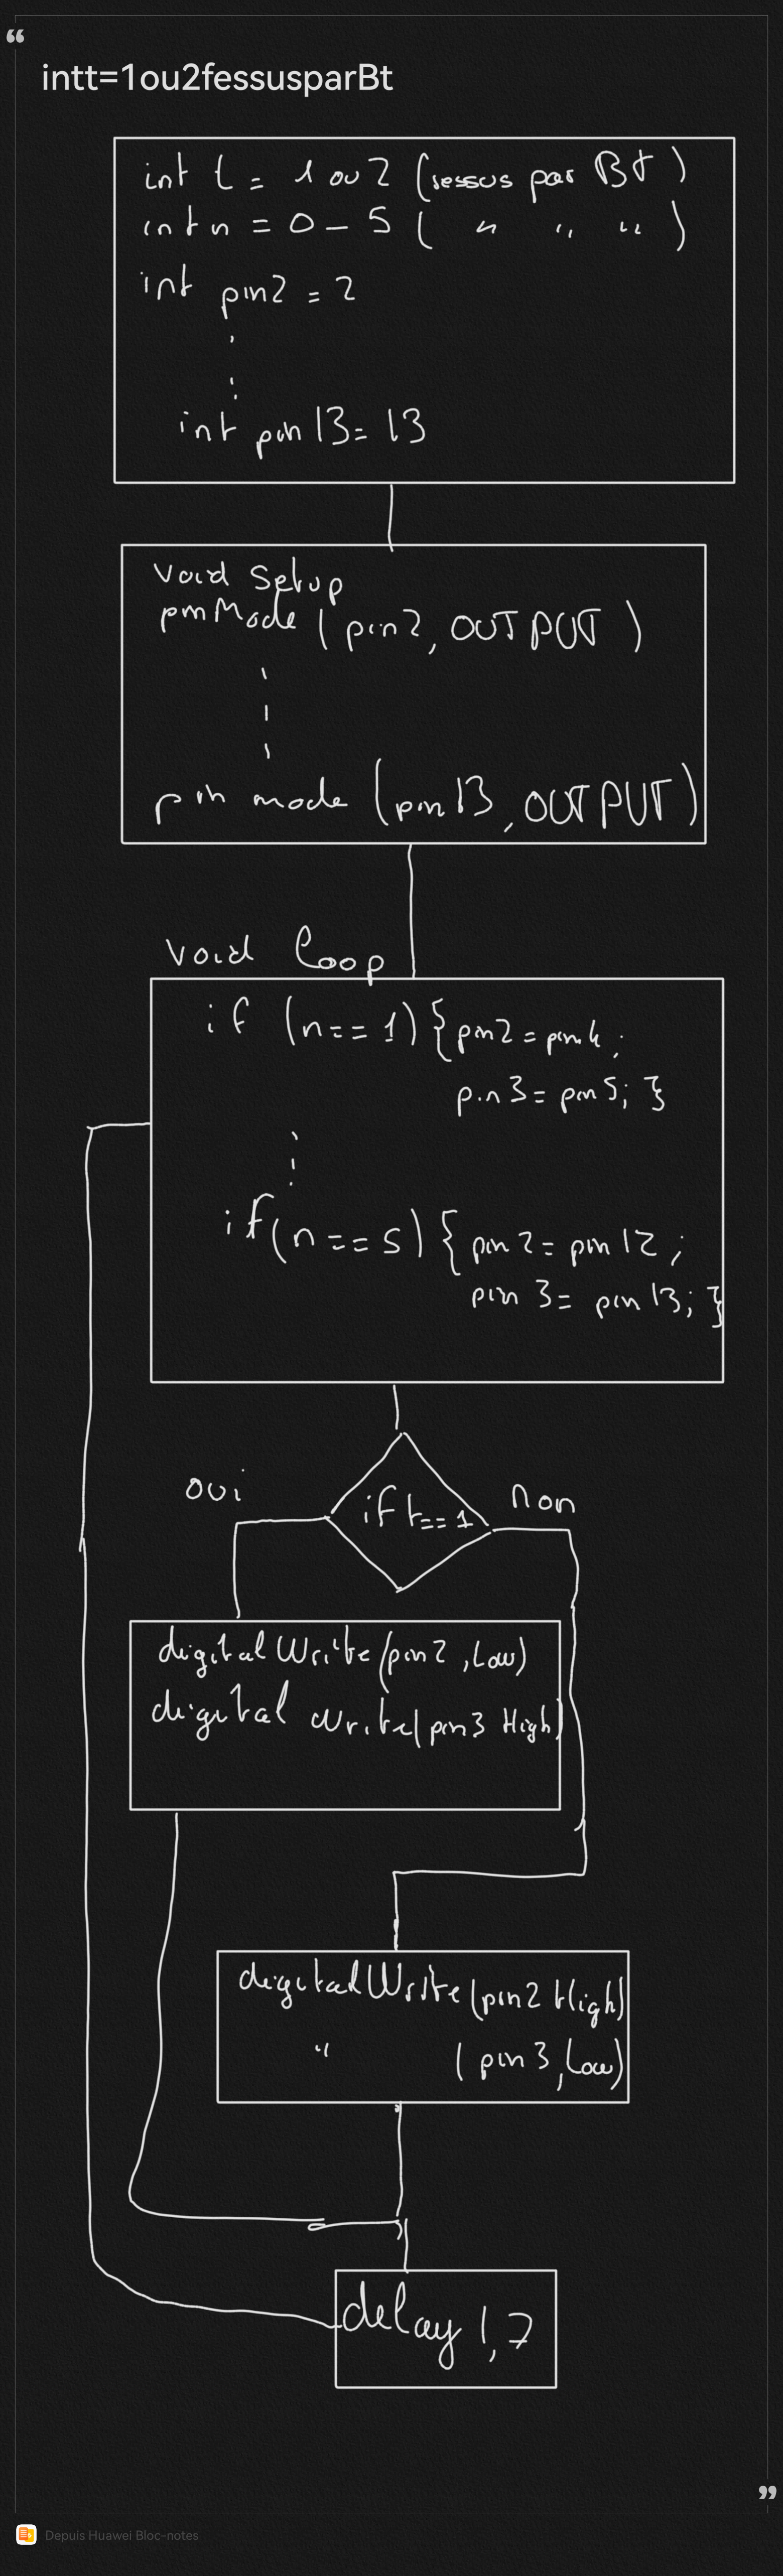 “
intt=1ou2fessusparBt
int t = 1 ou 2 (ressus par Bt)
int n = 0 – 5 ( " " " )
int pin2 = 2
int pin 13 = 13
void Setup
pinMode (pin2, OUTPUT)
pin mode (pin13, OUTPUT)
void loop
if (n == 1) { pin2 = pin4 ;
pin 3 = pin 5 ; }
if (n == 5) { pin 2 = pin 12 ;
pin 3 = pin 13 ; }
oui
if t == 1
non
digitalWrite (pin2 , Low)
digital write ( pin3 High)
digitalWrite (pin2 High)
" ( pin 3 , Low)
delay 1,7
”
Depuis Huawei Bloc-notes